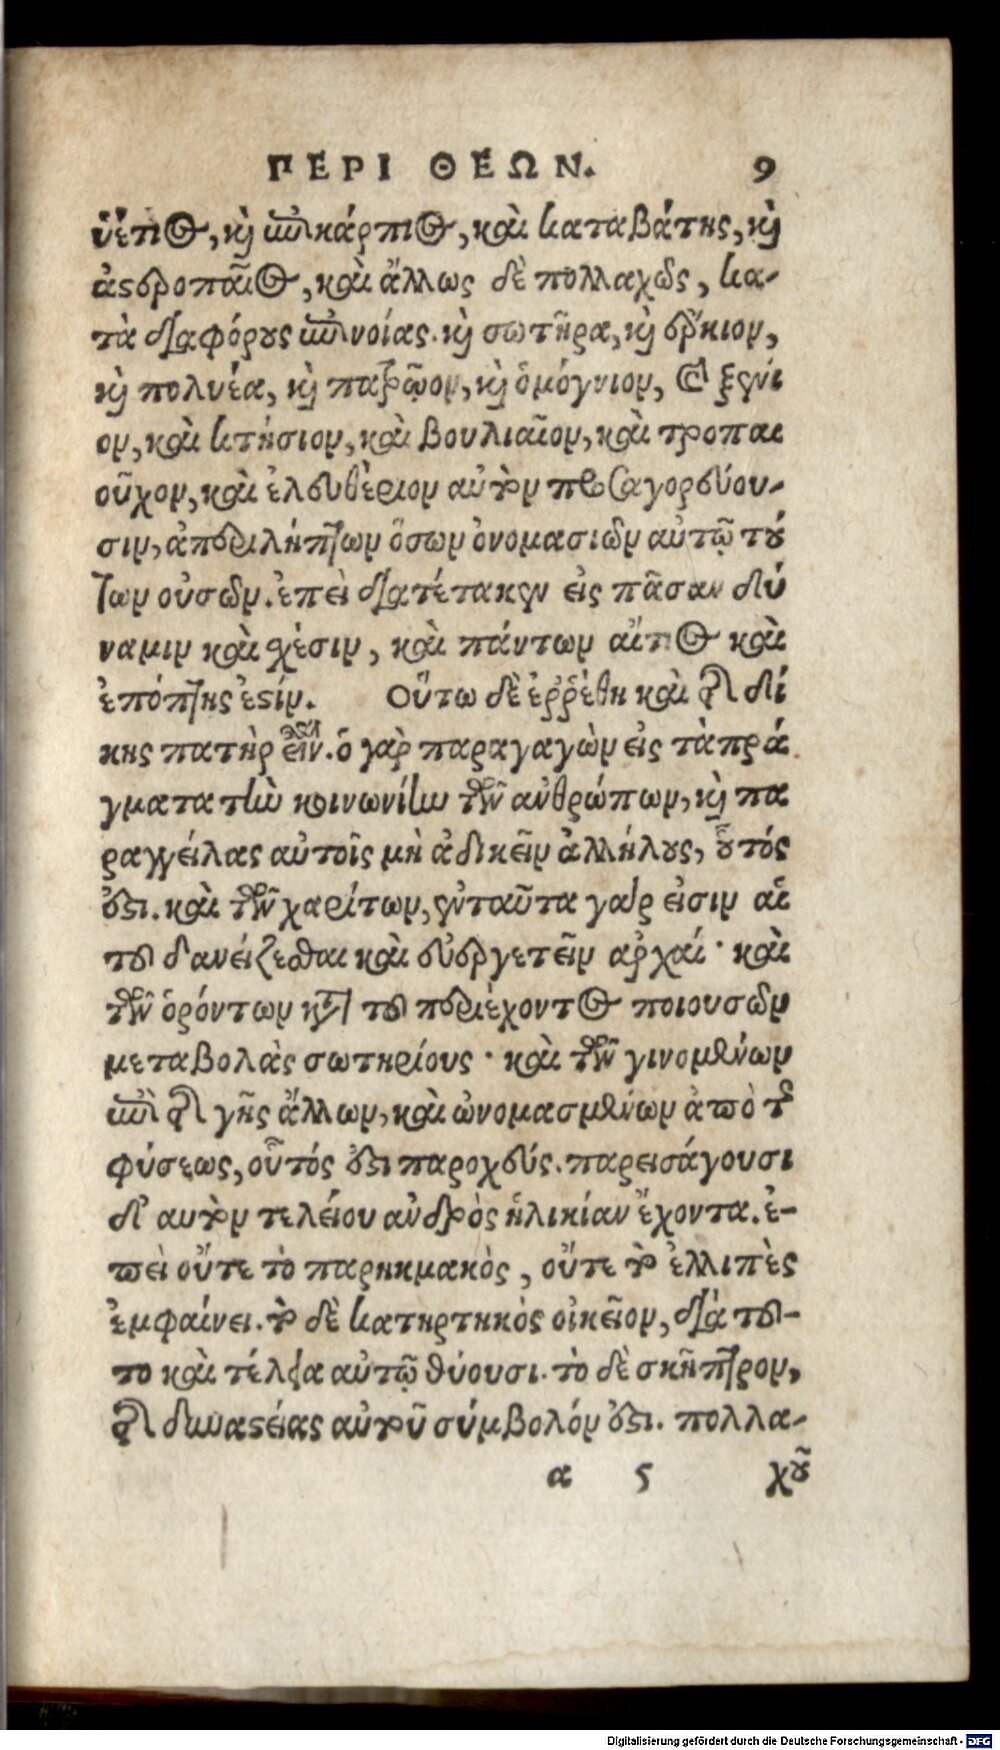 ΠΕΡΙ ΘΕΩΝ. 9
ὑέτιος, καὶ ἐπικάρπιος, καὶ καταβάτης, καὶ
ἀστροπαῖος, καὶ ἄλλως δὲ πολλαχῶς, κα-
τὰ διαφόρους ἐπινοίας. καὶ σωτῆρα, καὶ ἕρκιον,
καὶ πολυέα, καὶ πατρῷον, καὶ ὁμόγνιον, καὶ ξένι
ον, καὶ κτήσιον, καὶ βουλιαῖον, καὶ τροπαι
οῦχον, καὶ ἐλευθέριον αὐτὸν προσαγορεύου-
σιν, ἀπεριλήπτων ὅσων ὀνομασιῶν αὐτῷ τού
των οὐσῶν. ἐπεὶ διατέτακεν εἰς πᾶσαν δύ
ναμιν καὶ σχέσιν, καὶ πάντων αἴτιος καὶ
ἐπόπτης ἐστίν. Οὕτω δὲ ἐῤῥέθη καὶ τῆς δί
κης πατὴρ εἶναι. ὁ γὰρ παραγαγὼν εἰς τὰ πρά
γματα τὴν κοινωνίαν τῶν ἀνθρώπων, καὶ πα
ραγγείλας αὐτοῖς μὴ ἀδικεῖν ἀλλήλους, οὗτός
ἐστι. καὶ τῶν χαρίτων, ἐνταῦτα γάρ εἰσιν αἱ
τοῦ δανείζεσθαι καὶ εὐεργετεῖν ἀρχαί· καὶ
τῶν ὁρόντων κατὰ τοῦ περιέχοντος ποιουσῶν
μεταβολὰς σωτηρίους· καὶ τῶν γινομένων
ἐπὶ τῆς γῆς ἄλλων, καὶ ὠνομασμένων ἀπὸ τῆς
φύσεως, οὗτός ἐστι παροχεύς. παρεισάγουσι
δ' αυτὸν τελείου ἀνδρὸς ἡλικίαν ἔχοντα. ἐ-
πεὶ οὔτε τὸ παρηκμακὸς, οὔτε τὸ ἐλλιπὲς
ἐμφαίνει. τὸ δὲ κατηρτηκὸς οἰκεῖον, διὰ τοῦ-
το καὶ τέλεια αὐτῷ θύουσι. τὸ δὲ σκῆπτρον,
τῆς δυναστείας αὐτοῦ σύμβολόν ἐστι. πολλα-
α 5 χοῦ
Digitalisierung gefördert durch die Deutsche Forschungsgemeinschaft - DFG